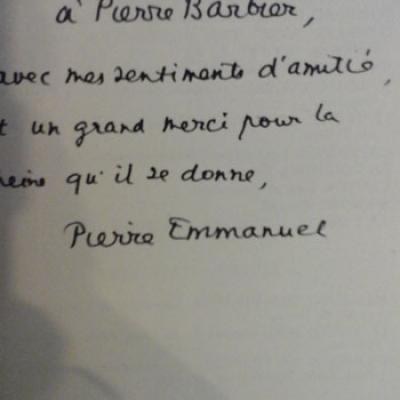 à Pierre Barbier,
avec mes sentiments d'amitié,
t un grand merci pour la
peine qu'il se donne,
Pierre Emmanuel